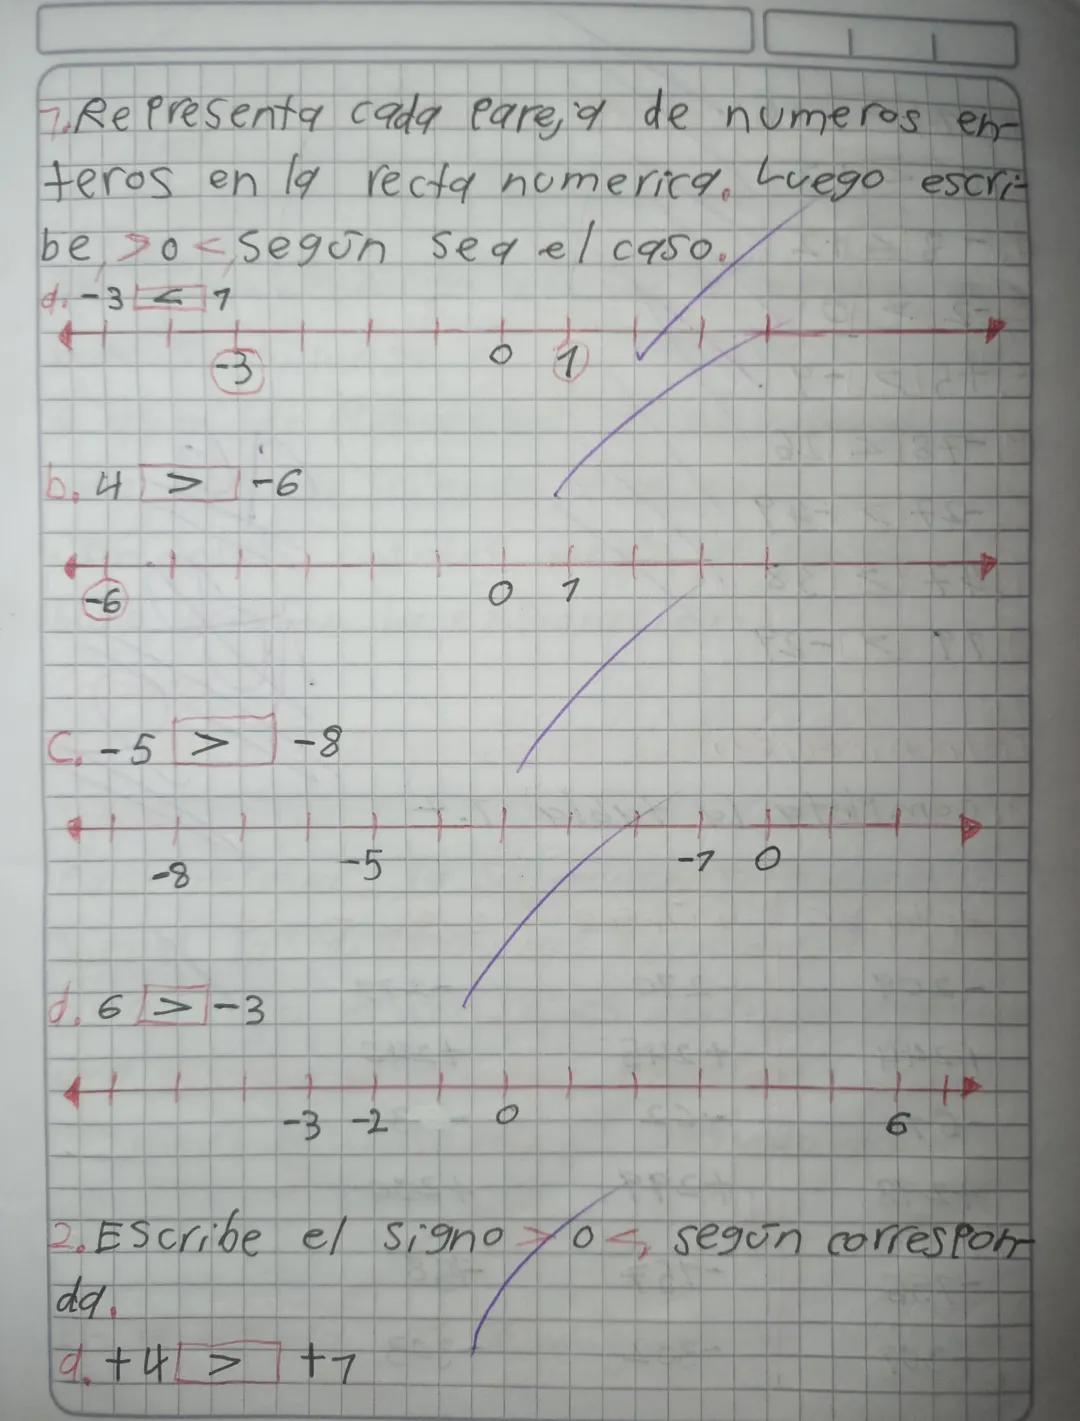 1. Representa cada pareja de numeros en-
teros en la recta numerica. Luego escri-
be > o < según sea el caso.
a. -3 < 1
-3 0 1
b. 4 > -6
-6 0 1
c. -5 > -8
-8 -5 -1 0
d. 6 > -3
-3 -2 0 6
2. Escribe el signo > o <, según correspon-
da.
a. +4 > +1